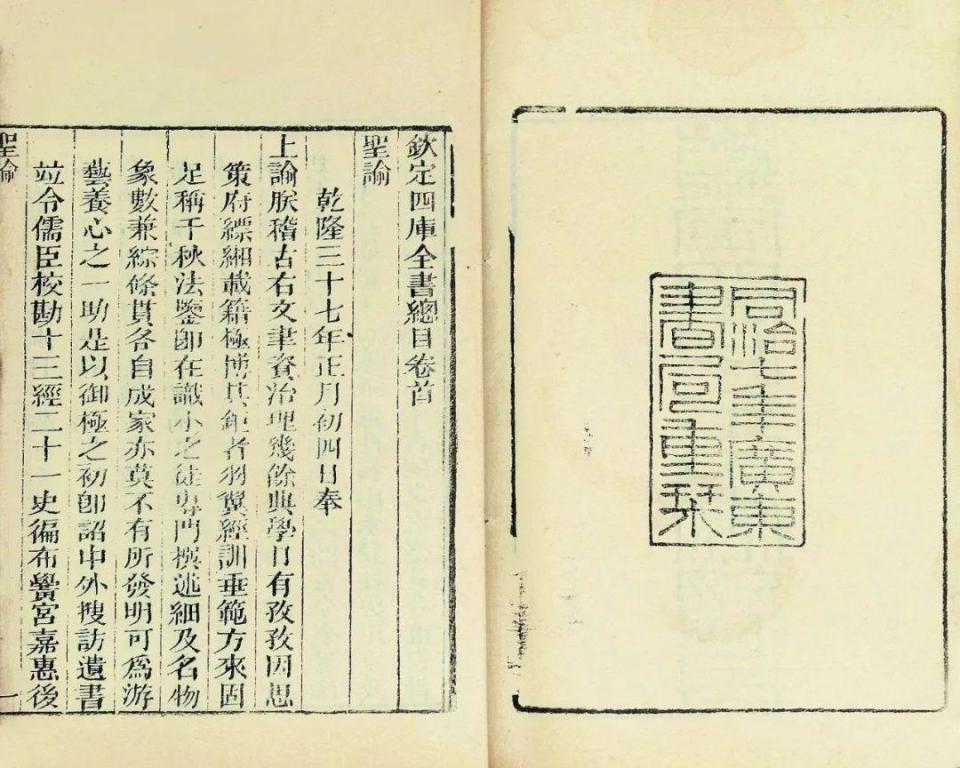 同治七年廣東
書局重栞
欽定四庫全書總目卷首
聖諭
乾隆三十七年正月初四日奉
上諭朕稽古右文聿資治理幾餘典學日有孜孜因思
策府縹緗載籍極博其鉅者羽翼經訓垂範方來固
足稱千秋法鑒卽在識小之徒專門撰述細及名物
象數兼綜條貫各自成家亦莫不有所發明可爲游
藝養心之一助是以御極之初卽詔中外搜訪遺書
竝令儒臣校勘十三經二十一史徧布黌宮嘉惠後
聖諭
一